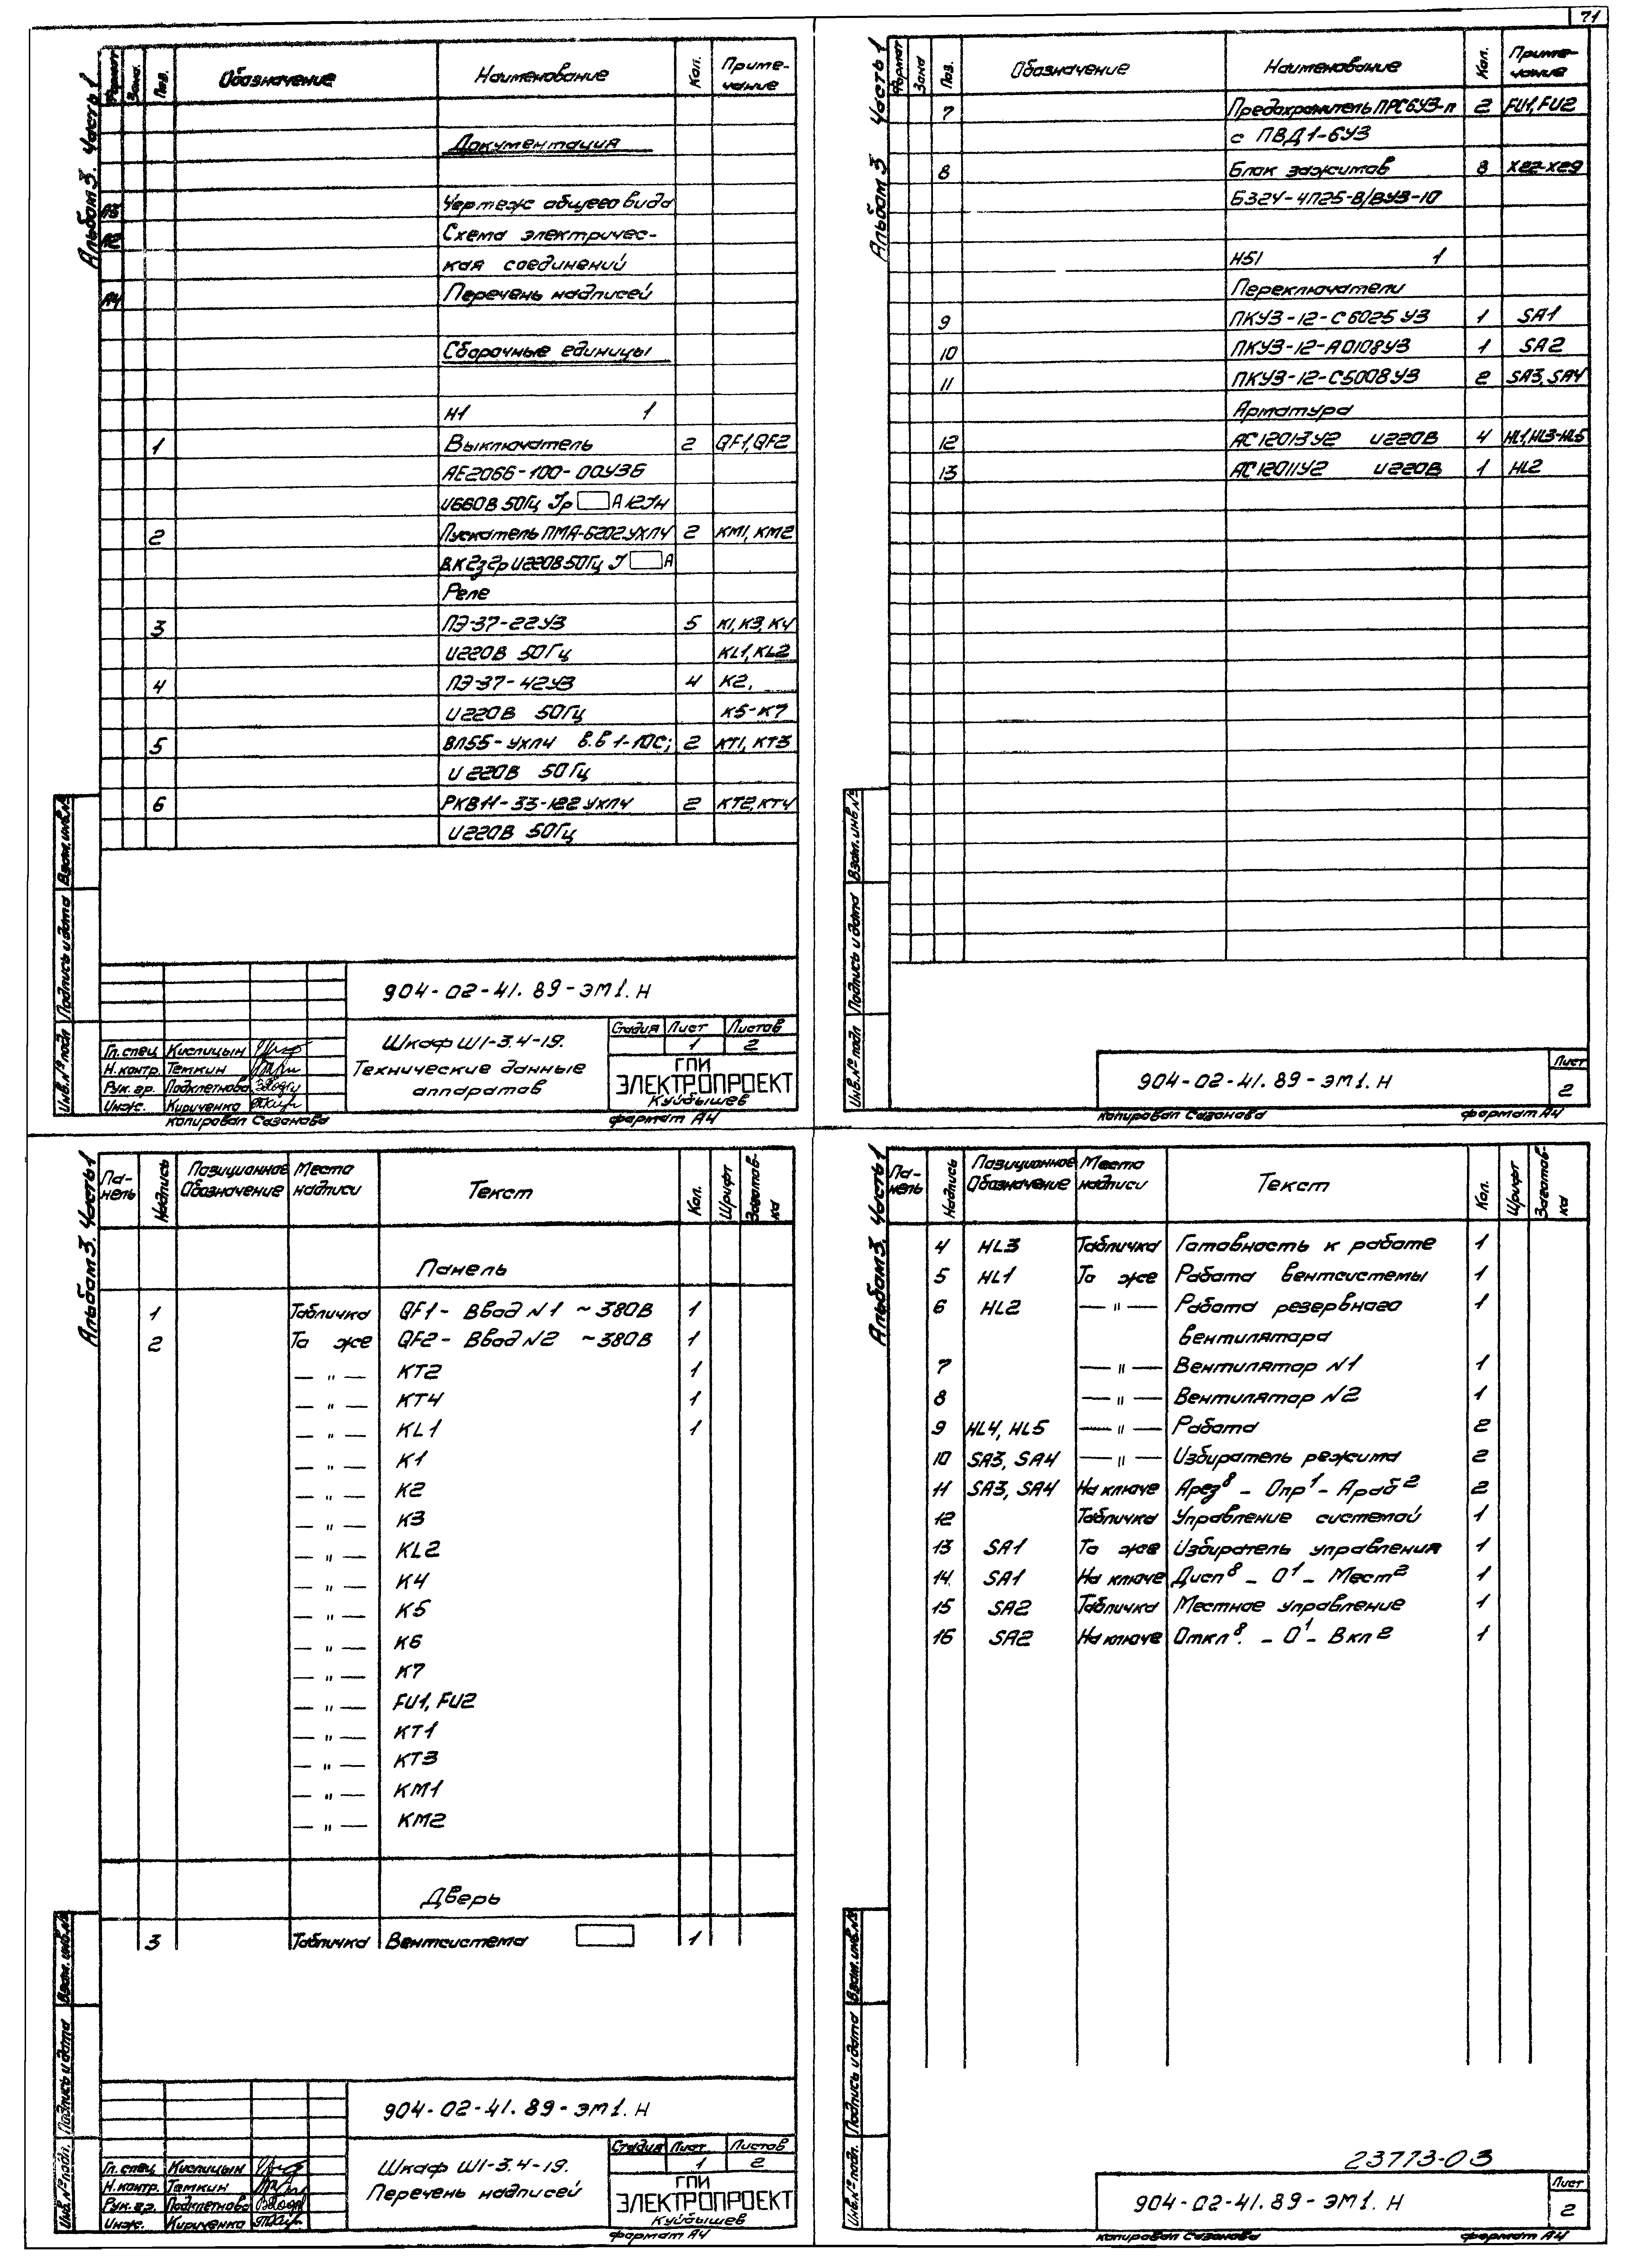 71
Альбом 3. Часть 1
Формат Зона Поз. Обозначение Наименование Кол. Примечание
Документация
А3 Чертеж общего вида
А2 Схема электричес-
кая соединений
А4 Перечень надписей
Сборочные единицы
Н1 1
1 Выключатель 2 QF1, QF2
АЕ2066-100-00У3Б
U660В 50Гц Iр А 12Iн
2 Пускатель ПМА-6202.УХЛ4 2 КМ1, КМ2
ВК2з2р U220В 50Гц I А
Реле
3 ПЭ-37-22У3 5 К1, К3, К4
U220В 50Гц КL1, КL2
4 ПЭ-37-42У3 4 К2,
U220В 50Гц К5-К7
5 ВЛ55-УХЛ4 В.В 1-10С; 2 КТ1, КТ3
U 220В 50Гц
6 РКВ11-33-122 УХЛ4 2 КТ2, КТ4
U220В 50Гц
Взам. инв. №
Подпись и дата
Инв. № подл
904-02-41.89-ЭМ1.Н
Гл. спец Кислицын
Н. контр. Темкин
Рук. гр. Подклетнова
Инж. Кириченко
Шкаф Ш1-3.4-19.
Технические данные
аппаратов
Стадия Лист Листов
1 2
ГПИ
ЭЛЕКТРОПРОЕКТ
Куйбышев
копировал Сазанова формат А4
Альбом 3 Часть 1
Формат Зона Поз. Обозначение Наименование Кол. Примечание
7 Предохранитель ПРС6У3-п 2 FU1, FU2
с ПВД1-6У3
8 Блок зажимов 8 Х22-Х29
БЗ24-4П25-В/ВУ3-10
Н51 1
Переключатели
9 ПКУ3-12-С6025 У3 1 SА1
10 ПКУ3-12-А0108У3 1 SА2
11 ПКУ3-12-С5008У3 2 SА3, SА4
Арматура
12 АС12013У2 U220В 4 HL1, HL3-HL5
13 АС12011У2 U220В 1 HL2
Взам. инв. №
Подпись и дата
Инв. № подл
904-02-41.89-ЭМ1.Н
Лист
2
копировал Сазанова формат А4
Альбом 3. Часть 1
Панель Надпись Позиционное Обозначение Место надписи Текст Кол. Шрифт Заготовка
Панель
1 Табличка QF1 - Ввод N1 ~380В 1
2 То же QF2 - Ввод N2 ~380В 1
— " — КТ2 1
— " — КТ4 1
— " — КL1 1
— " — К1
— " — К2
— " — К3
— " — КL2
— " — К4
— " — К5
— " — К6
— " — К7
— " — FU1, FU2
— " — КТ1
— " — КТ3
— " — КМ1
— " — КМ2
Дверь
3 Табличка Вентсистема 1
Взам. инв. №
Подпись и дата
Инв. № подл.
904-02-41.89-ЭМ1.Н
Гл. спец Кислицын
Н. контр. Темкин
Рук. гр. Подклетнова
Инж. Кириченко
Шкаф Ш1-3.4-19.
Перечень надписей
Стадия Лист Листов
1 2
ГПИ
ЭЛЕКТРОПРОЕКТ
Куйбышев
формат А4
Альбом 3. Часть 1
Панель Надпись Позиционное Обозначение Место надписи Текст Кол. Шрифт Заготовка
4 HL3 Табличка Готовность к работе 1
5 HL1 То же Работа вентсистемы 1
6 HL2 — " — Работа резервного 1
вентилятора
7 — " — Вентилятор N1 1
8 — " — Вентилятор N2 1
9 HL4, HL5 — " — Работа 2
10 SА3, SА4 — " — Избиратель режима 2
11 SА3, SА4 На ключе Арез⁸ - Опр¹ - Араб² 2
12 Табличка Управление системой 1
13 SА1 То же Избиратель управления 1
14 SА1 На ключе Дисп⁸ - О¹ - Мест² 1
15 SА2 Табличка Местное управление 1
16 SА2 На ключе Откл⁸. - О¹ - Вкл² 1
Взам. инв. №
Подпись и дата
Инв. № подл.
23773-03
904-02-41.89-ЭМ1.Н
Лист
2
копировал Сазанова формат А4